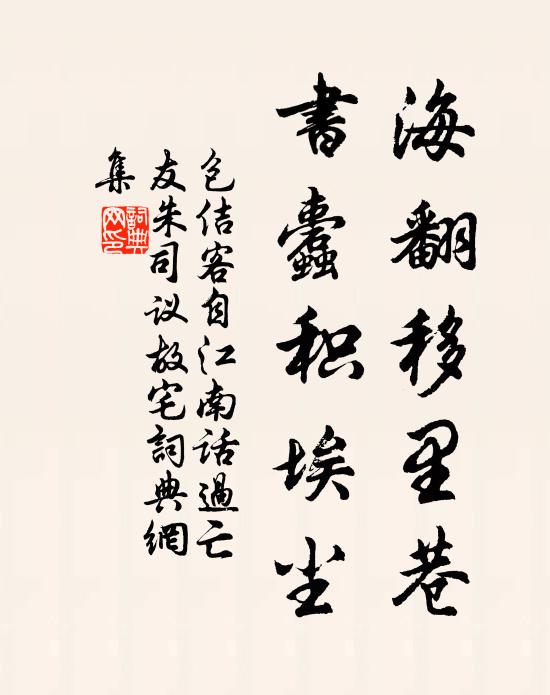 海翻移里巷
書蠹积埃尘
包佶客自江南话過亡
友朱司议故宅詞典網
集
詞典
网印